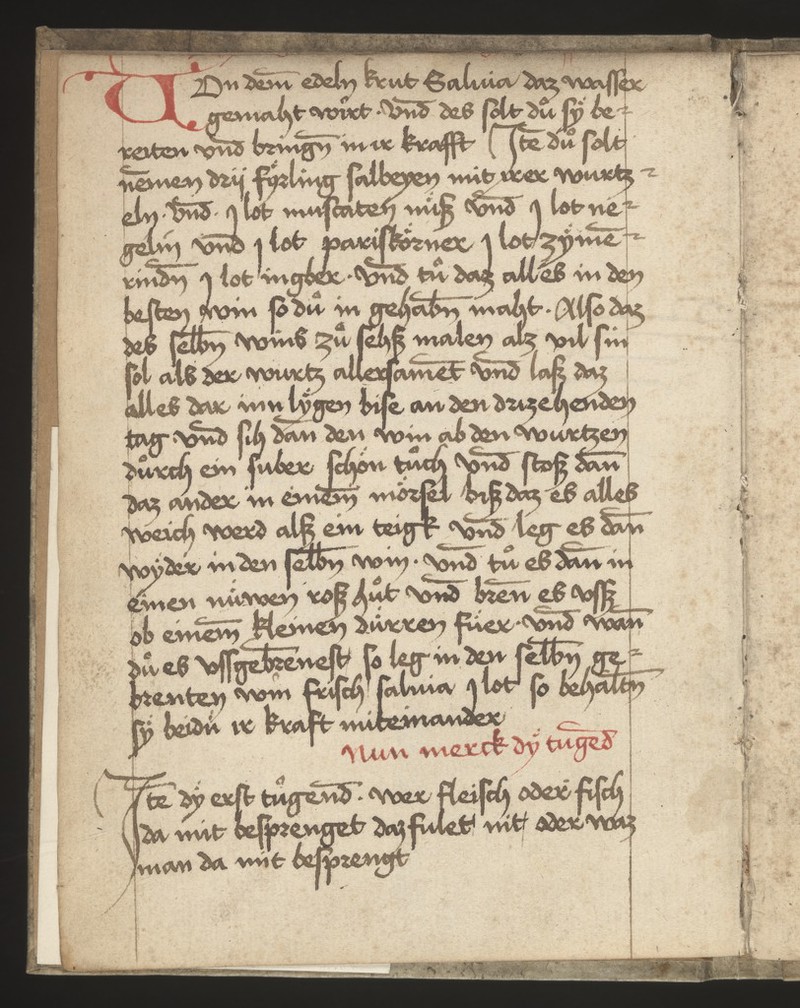 VOn dem̄ edeln krut Saluia daz wasser
gemaht wirt · vnd̄ des solt dů sÿ be⸗
reiten vnd̄ bringn̄ in ir krafft Itē dů solt
nēmen drÿ fÿrling salbeyen mit irer wurtz⸗
eln · vnd̄ · j lot muscaten nüß vnd̄ j lot ne⸗
gelin vnd̄ j lot pariskörner j lot zÿmē⸗
rindn̄ j lot ingber · vnd̄ tů daz alles in den
besten win so dů in gehabn̄ maht · Also daz
des selbn̄ wins zů sehß malen alz vil sin
sol als der wurtz allersamēt vnd̄ laß daz
alles dar inn lÿgen bise an den drizehenden
tag vnd̄ sih dan̄ den win ab den wurtzen
dürch ein suber schön tůch vnd̄ stoß dan̄
daz ander in einem̄ mörsel biß daz es alles
weich werd alß ein teigk vnd̄ leg es dan̄
wÿder in den selbn̄ win · vnd̄ tů es dan̄ in
einen nüwen roß hůt vnd̄ bren̄ es vsß
ob einem̄ kleinen dürren füer · vnd̄ wan̄
dů es vssgebrēnest so leg in den selbn̄ ge⸗
brenten win frisch saluia j lot so behaltn̄
sÿ beidü ir kraft miteinander
Nun merck dÿ tugēd
Itē dÿ erst tůgend̄ · wer fleisch oder fisch
da mit besprenget daz fulet nit oder waz
man da mit besprengt